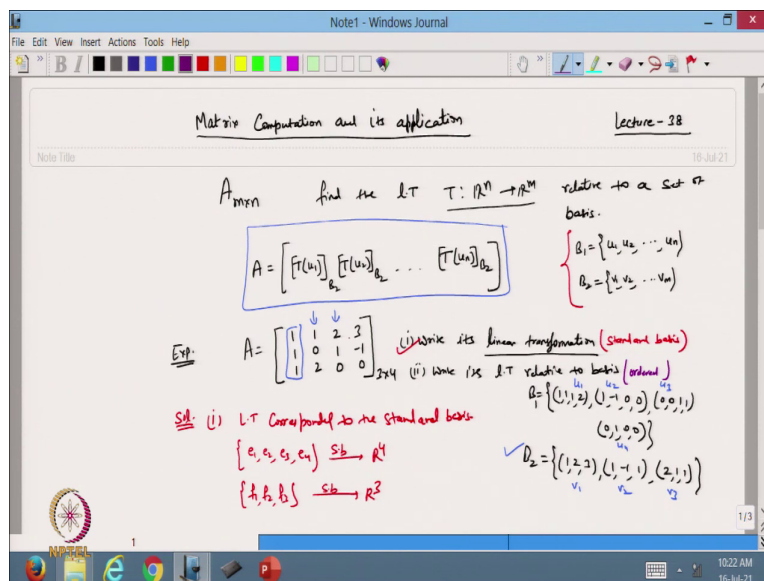 Note1 - Windows Journal
File Edit View Insert Actions Tools Help
Matrix Computation and its application
Lecture - 38
Note Title
16-Jul-21
A_{m×n} find the L.T T: ℝ^n → ℝ^m relative to a set of basis.
A = [[T(u_1)]_{B_2} [T(u_2)]_{B_2} . . . [T(u_n)]_{B_2}]
B_1 = {u_1, u_2, ..., u_n}
B_2 = {v_1, v_2, ... v_m}
Exp. A = [1 1 2 3
1 0 1 -1
1 2 0 0]_{3×4}
(i) Write its linear transformation (standard basis)
(ii) Write its L.T relative to basis (ordered)
B_1 = {(1,1,1,2), (1,-1,0,0), (0,0,1,1)
u_1 u_2 u_3
(0,1,0,0)}
u_4
B_2 = {(1,2,3), (1,-1,1), (2,1,1)}
v_1 v_2 v_3
Sol. (i) L.T Correspondel to the standard basis
{e_1, e_2, e_3, e_4} s.b → ℝ^4
{f_1, f_2, f_3} s.b → ℝ^3
1/3
1
NPTEL
10:22 AM
16-Jul-21